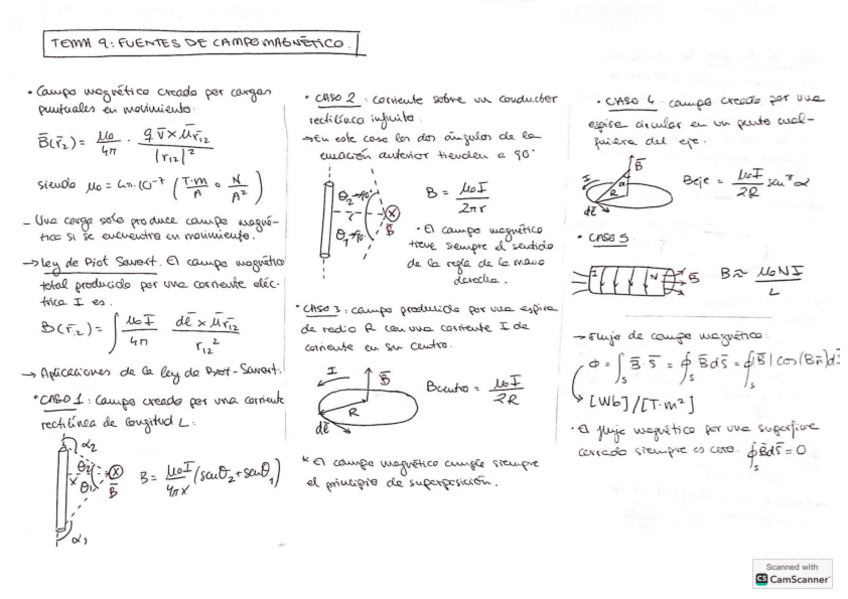 TEMA 9: FUENTES DE CAMPO MAGNÉTICO.
• Campo magnético creado por cargas
puntuales en movimiento:
B̄(r̄₂) = μ₀/4π · q v̄ × ūr₁₂ / |r₁₂|²
siendo μ₀ = 4π·10⁻⁷ (T·m/A o N/A²)
- Una carga solo produce campo magné-
tico si se encuentra en movimiento.
→ Ley de Biot Savart. El campo magnético
total producido por una corriente eléc-
trica I es.
B(r̄₂) = ∫ μ₀I/4π dl̄ × ūr₁₂ / r₁₂²
→ Aplicaciones de la ley de Biot-Savart:
• CASO 1: campo creado por una corriente
rectilínea de longitud L:
α₂
θ₂
x
θ₁
B̄
α₁
B = μ₀I/4πx (senθ₂ + senθ₁)
• CASO 2: corriente sobre un conductor
rectilíneo infinito
→ En este caso los dos ángulos de la
ecuación anterior tienden a 90°
θ₂→90°
r
θ₁→90
B̄
B = μ₀I/2πr
• El campo magnético
tiene siempre el sentido
de la regla de la mano
derecha.
• CASO 3: campo producido por una espira
de radio R con una corriente I de
corriente en su centro.
I
B̄
R
dl̄
Bcentro = μ₀I/2R
* El campo magnético cumple siempre
el principio de superposición.
• CASO 4: campo creado por una
espira circular en un punto cual-
quiera del eje.
B̄
I
α
R
dl̄
Beje = μ₀I/2R sen³ α
• CASO 5
I
N
B̄
B ≈ μ₀NI/L
→ Flujo de campo magnético:
Φ = ∫s B̄·S̄ = ∮s B̄dS̄ = ∮s |B̄| cos(B̄n̄)dS
[Wb]/[T·m²]
• El flujo magnético por una superficie
cerrada siempre es cero. ∮s B̄dS̄ = 0
Scanned with
CS CamScanner